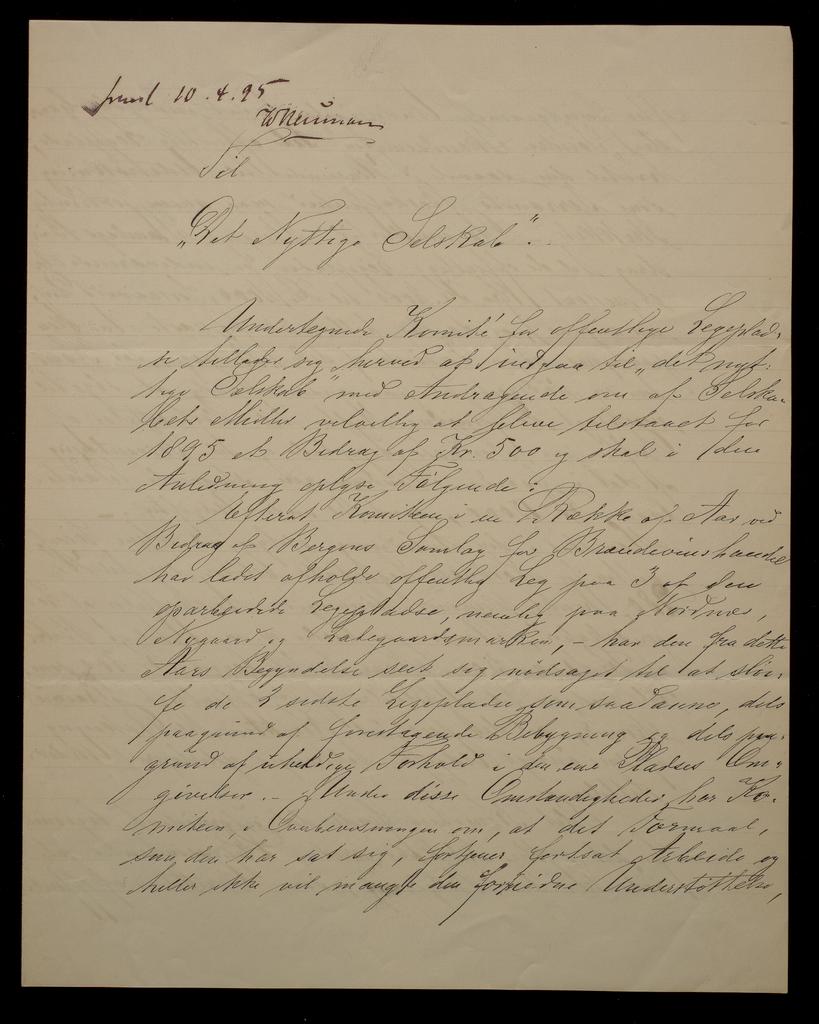 10.4.95
WNeumann
Til
„Det Nyttige Selskab“.
Undertegnede Komité for offentlige Legeplad-
se tillader sig herved at indgaa til „det nyt-
tige Selskab“ med Andragende om af Selska-
bets Midler velvillig at blive tilstaaet for
1895 et Bidrag af Kr. 500 og skal i den
Anledning oplyse Følgende:
Efterat Komiteen i en Række af Aar ved
Bidrag af Bergens Samlag for Brændevinshandel
har ladet afholde offentlig Leg paa 3 af den
oparbeidede Legepladse, nemlig paa Nordnes,
Nygaard og Ladegaardsmarken, – har den fra dette
Aars Begyndelse seet sig nødsaget til at sløi-
fe de 2 sidste Legepladse som saadanne, dels
paagrund af forestagende Bebygning og dels paa-
grund af uheldige Forhold i den ene Pladses Om-
givelser. – Under disse Omstændigheder har Ko-
miteen, i Overbevisningen om, at det Formaal,
som den har sat sig, fortjener fortsat Arbeide og
heller ikke vil mangle den fornødne Understøttelse,